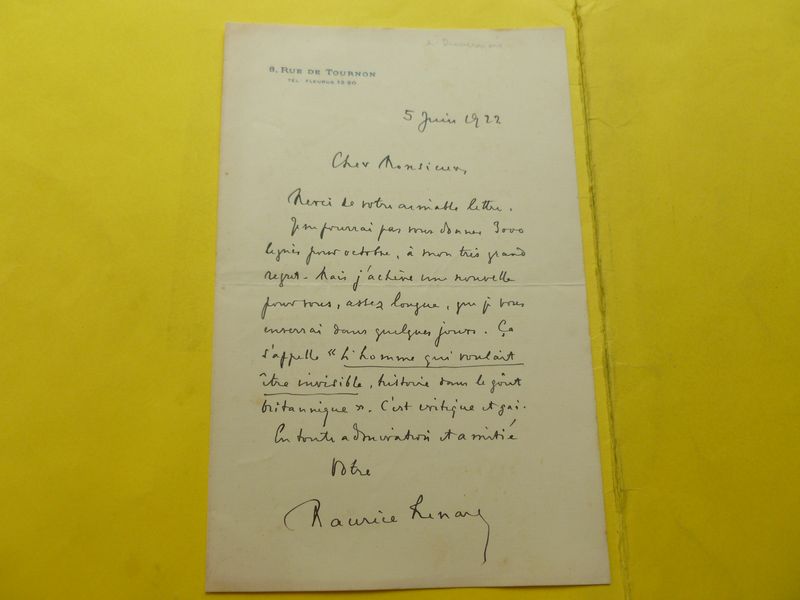 6, RUE DE TOURNON
TÉL. FLEURUS 13 90
5 Juin 1922
Cher Monsieur,
Merci de votre aimable lettre.
Je ne pourrai pas vous donner 3000
lignes pour octobre, à mon très grand
regret. Mais j'achève une nouvelle
pour vous, assez longue, que je vous
enverrai dans quelques jours. Ça
s'appelle "L'homme qui voulait
être invisible, histoire dans le goût
britannique". C'est critique et gai.
En toute admiration et amitié
Votre
Maurice Renard